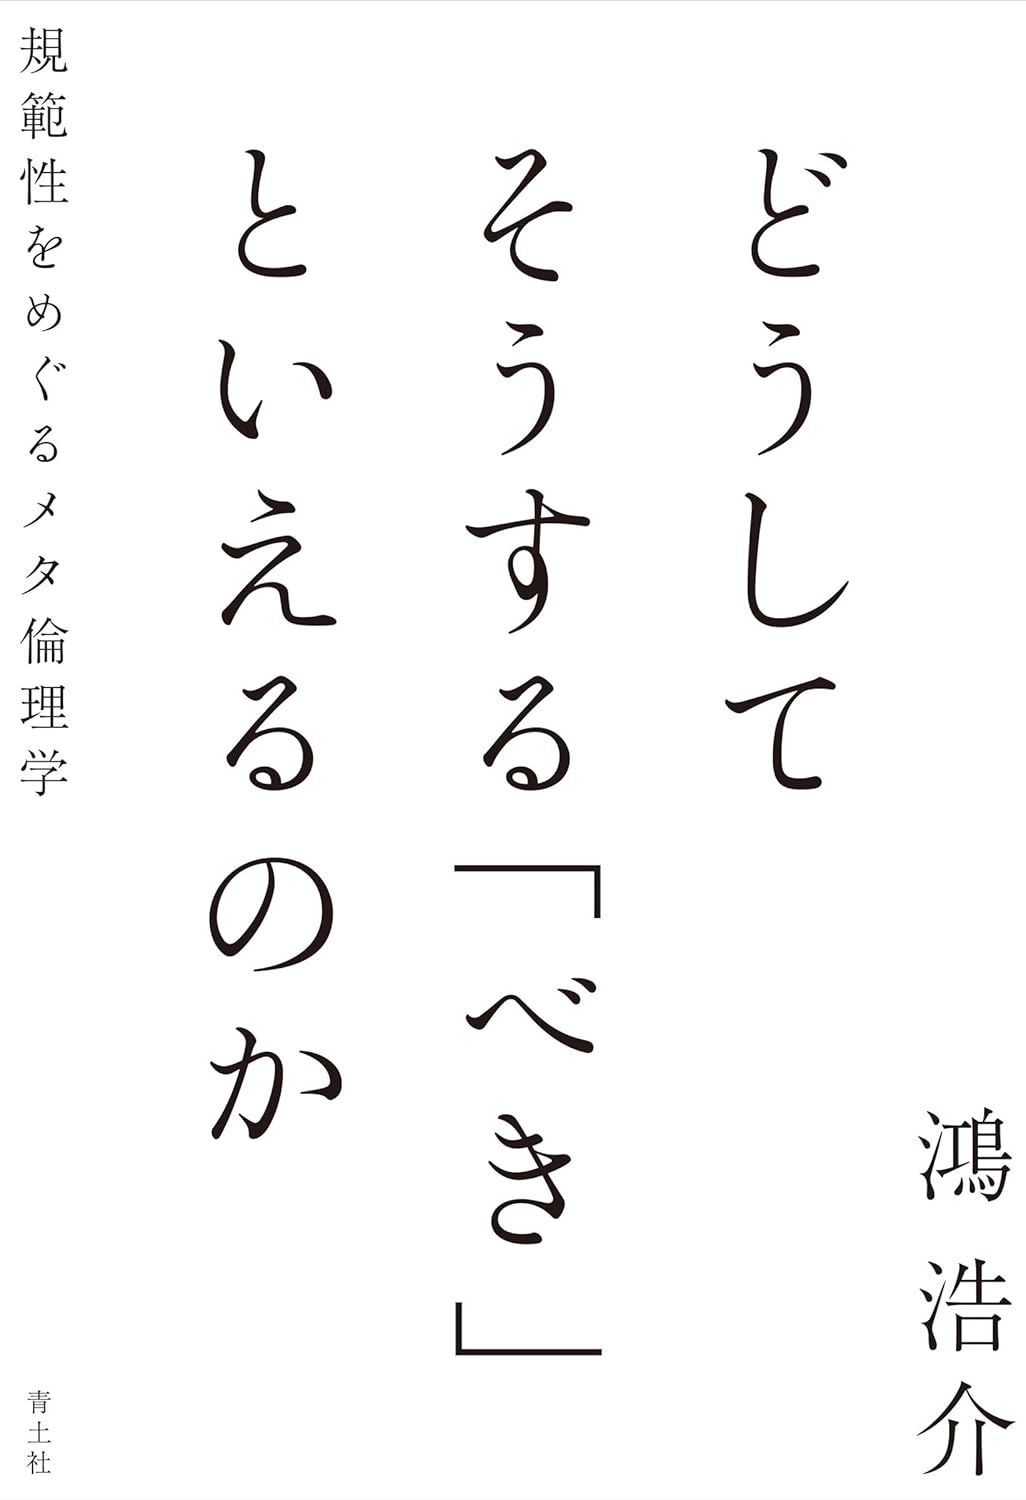 どうして
そうする「べき」
といえるのか
規範性をめぐるメタ倫理学
鴻浩介
青土社